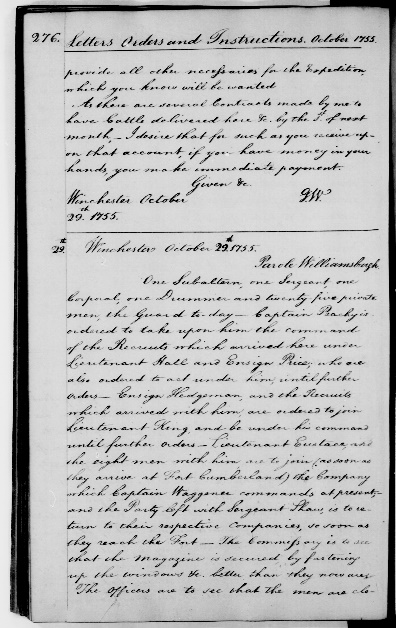 276. Letters Orders and Instructions. October 1755.
provide all other necessaries for the Expedition
which you know will be wanted
As there are several Contracts made by me to
have Cattle delivered here &c. by the 1st of next
month,- I desire that for such as you receive up-
on that account, if you have money in your
hands, you make immediate payment.
Given &c.
Winchester October GW.
29th 1755.
29th Winchester October 29th 1755.
Parole Williamsburgh.
One Subaltern, one Sergeant, one
Corporal, one Drummer and twenty five private
men, the Guard to-day - Captain is
ordered to take upon him the command
of the Recruits which arrived here under
Lieutenant Hall and Ensign Price, who are
also ordered to act under him, until further
orders - Ensign Hedgeman, and the Recruits
which arrived with him, are ordered to join
Lieutenant King, and be under his command
until further orders - Lieutenant Eustace, and
the eight men with him are to join (as soon as
they arrive at Fort Cumberland) the Company
which Captain Waggener commands at present-
and the Party left with Sergeant Shaw, is to re-
turn to their respective Companies, so soon as
they reach the Fort - The Commissary is to see
that the Magazine is secured by fastening
up the windows &c. better than they now are.
The Officers are to see that the men are clo-